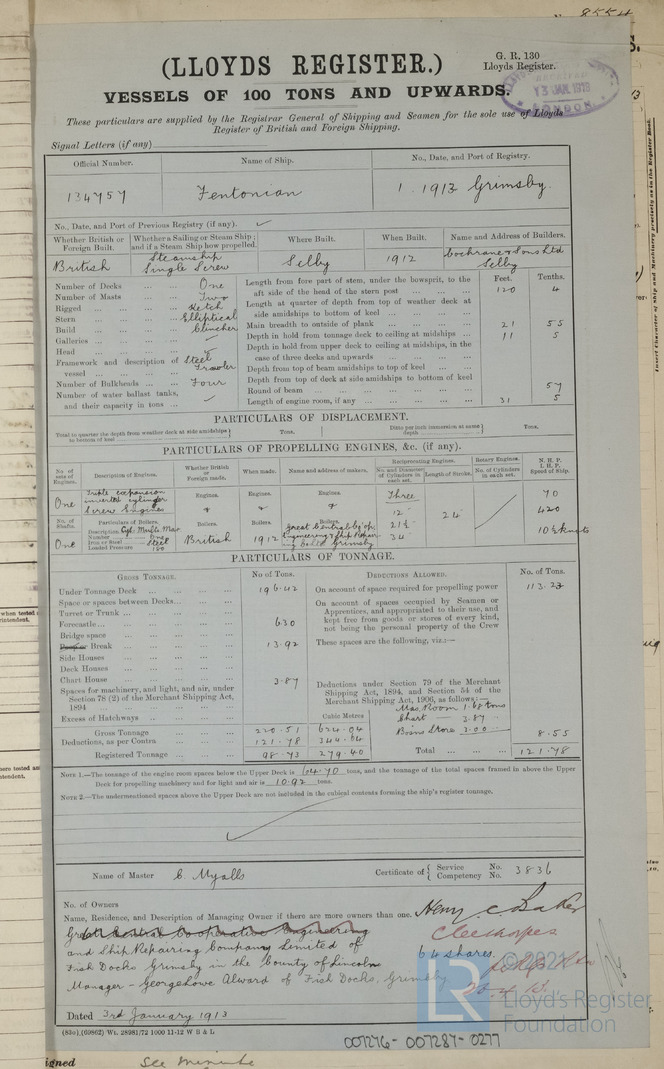 8554
(LLOYDS REGISTER.)
G. R. 130
Lloyds Register.
VESSELS OF 100 TONS AND UPWARDS.
13 JAN 1913
LONDON
These particulars are supplied by the Registrar General of Shipping and Seamen for the sole use of Lloyds
Register of British and Foreign Shipping.
Signal Letters (if any)
Official Number. Name of Ship. No., Date, and Port of Registry.
134757 Fentonian 1. 1913 Grimsby.
No., Date, and Port of Previous Registry (if any).
Whether British or Foreign Built. Whether a Sailing or Steam Ship; and if a Steam Ship how propelled. Where Built. When Built. Name and Address of Builders.
British Steamship Single Screw Selby 1912 Cochrane & Sons Ltd Selby
Feet. Tenths.
Number of Decks One Length from fore part of stem, under the bowsprit, to the
Number of Masts Two aft side of the head of the stern post 120 4
Rigged Ketch Length at quarter of depth from top of weather deck at
Stern Elliptical side amidships to bottom of keel
Build Clincher Main breadth to outside of plank 21 55
Galleries Depth in hold from tonnage deck to ceiling at midships 11 5
Head Depth in hold from upper deck to ceiling at midships, in the
Framework and description of vessel Steel Trawler case of three decks and upwards
Depth from top of beam amidships to top of keel
Number of Bulkheads Four Depth from top of deck at side amidships to bottom of keel
Number of water ballast tanks, Round of beam 57
and their capacity in tons Length of engine room, if any 31 5
PARTICULARS OF DISPLACEMENT.
Total to quarter the depth from weather deck at side amidships to bottom of keel Tons. Ditto per inch immersion at same depth Tons.
PARTICULARS OF PROPELLING ENGINES, &c. (if any).
No. of sets of Engines. Description of Engines. Whether British or Foreign made. When made. Name and address of makers. Reciprocating Engines. No. and Diameter of Cylinders in each set. Length of Stroke. Rotary Engines. No. of Cylinders in each set. N. H. P. I. H. P. Speed of Ship.
One Triple expansion inverted cylinder Screw Engines Engines. Engines. Engines. Three 12" 21½ 34 24" 70 420 10½ knots
No. of Shafts. Particulars of Boilers. Boilers. Boilers. Boilers.
One Description Cyl. Multi. Mar. Number One Iron or Steel Steel Loaded Pressure 180 British 1912 Great Central Co-op. Engineering & Ship Repairing Co Ltd Grimsby
PARTICULARS OF TONNAGE.
GROSS TONNAGE. No of Tons. DEDUCTIONS ALLOWED. No. of Tons.
Under Tonnage Deck 196.42 On account of space required for propelling power 113.23
Space or spaces between Decks On account of spaces occupied by Seamen or
Turret or Trunk Apprentices, and appropriated to their use, and
Forecastle 6.30 kept free from goods or stores of every kind,
Bridge space not being the personal property of the Crew
Poop or Break 13.92 These spaces are the following, viz.:—
Side Houses
Deck Houses
Chart House 3.87
Spaces for machinery, and light, and air, under Deductions under Section 79 of the Merchant
Section 78 (2) of the Merchant Shipping Act, Shipping Act, 1894, and Section 54 of the
1894 Merchant Shipping Act, 1906, as follows:—
Excess of Hatchways Cubic Metres Mas. Room 1.68 tons
Gross Tonnage 220.51 624.04 Chart 3.87
Deductions, as per Contra 121.78 344.64 Bosns Store 3.00 8.55
Registered Tonnage 98.73 279.40 Total 121.78
NOTE 1.—The tonnage of the engine room spaces below the Upper Deck is 64.70 tons, and the tonnage of the total spaces framed in above the Upper
Deck for propelling machinery and for light and air is 10.92 tons.
NOTE 2.—The undermentioned spaces above the Upper Deck are not included in the cubical contents forming the ship's register tonnage.
Name of Master C. Myalls Certificate of Service No. Competency No. 3836
No. of Owners
Name, Residence, and Description of Managing Owner if there are more owners than one. Henry C Baker
Great Central Cooperative Engineering Cleethorpes
and Ship Repairing Company Limited of 64 shares.
Fish Docks Grimsby in the County of Lincoln
Manager - George Howe Alward of Fish Docks, Grimsby
Dated 3rd January 1913
(83o).(69862) Wt. 28981/72 1000 11-12 W B & L
© 2021
LR
Lloyd's Register
Foundation
007276-007287-0277
igned See minute